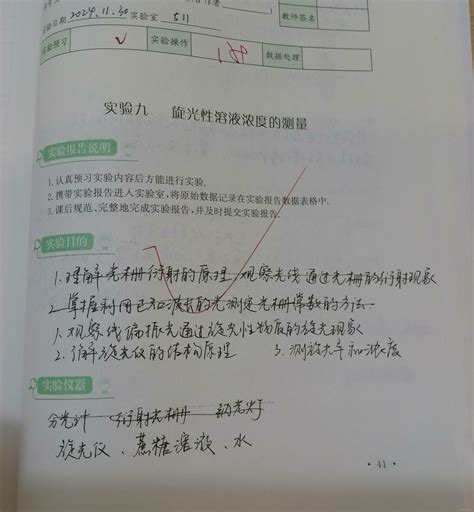 实验日期 2024.11.30 实验室 511
教师签名
实验预习 √ 实验操作 数据处理
实验九 旋光性溶液浓度的测量
实验报告说明
1. 认真预习实验内容后方能进行实验.
2. 携带实验报告进入实验室,将原始数据记录在实验报告数据表格中.
3. 课后规范、完整地完成实验报告,并及时提交实验报告.
实验目的
1. 理解光栅衍射的原理,观察光线通过光栅的衍射现象
2. 掌握利用已知波长的光测定光栅常数的方法.
1. 观察线偏振光通过旋光性物质的旋光现象
2. 了解旋光仪的结构原理 3. 测旋光率和浓度
实验仪器
分光计 衍射光栅 钠光灯
旋光仪、蔗糖溶液、水
· 41 ·